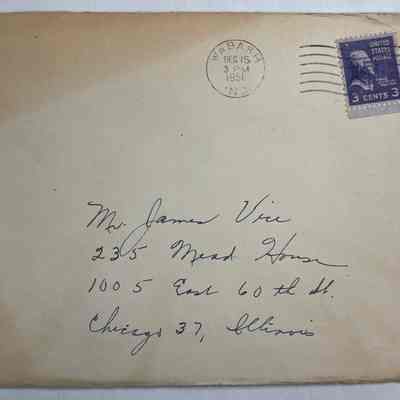 WABASH
DEC 15
3 PM
1951
IND.
UNITED
STATES
POSTAGE
3 CENTS 3
Mr. James Vice
235 Mead House
1005 East 60th St.
Chicago 37, Illinois